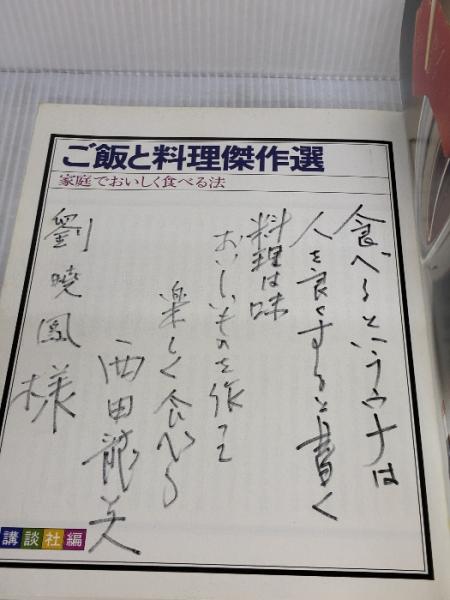 ご飯と料理傑作選
家庭でおいしく食べる法
食べるというウナは
人を良くすると書く
料理は味
おいしいものを作って
楽しく食べる
西田龍美
劉曉鳳様
講談社編